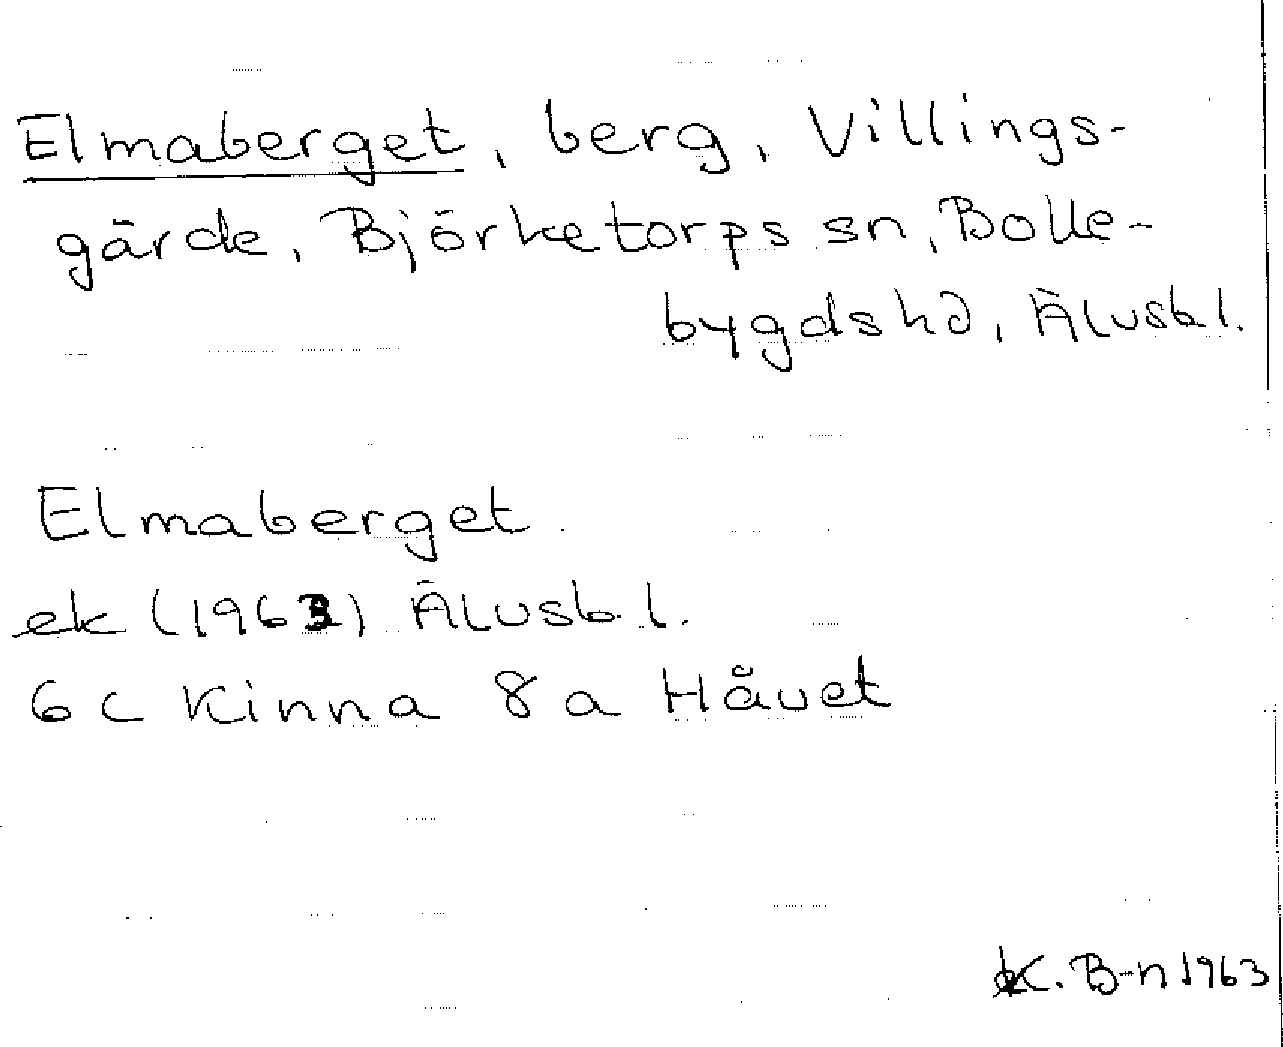 Elmaberget, berg, Villings-
gärde, Björketorps sn, Bolle-
bygds hd, Älvsb l.
Elmaberget
ek (1963) Älvsb. l.
6 c Kinna 8 a Håvet
K. B-n 1963